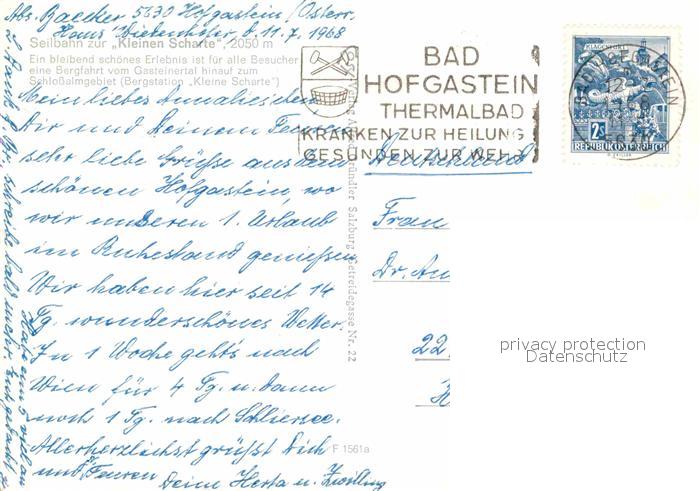 Abs. Baecker 5630 Hofgastein/Österr.
Haus d. 11.7.1968
Seilbahn zur „Kleinen Scharte", 2050 m
Ein bleibend schönes Erlebnis ist für alle Besucher
eine Bergfahrt vom Gasteinertal hinauf zum
Schloßalmgebiet (Bergstation „Kleine Scharte")
Mein liebes Annaliesichen
Dir und Deinem
sehr liebe Grüsse aus dem
schönen Hofgastein, wo
wir unseren 1. Urlaub
im Ruhestand geniessen.
Wir haben hier seit 14
Tg. wunderschönes Wetter.
In 1 Woche geht's nach
Wien für 4 Tg. u. dann
noch 1 Tg. nach Schliersee.
Allerherzlichst grüßt Dich
und Deine Herta u.
F 1561a
Salzburg, Getreidegasse Nr. 22
BAD
HOFGASTEIN
THERMALBAD
KRANKEN ZUR HEILUNG
GESUNDEN ZUR WEHR
KLAGENFURT
2 S
REPUBLIK ÖSTERREICH
Deutschland
Frau
Dr. An
22
H
privacy protection
Datenschutz